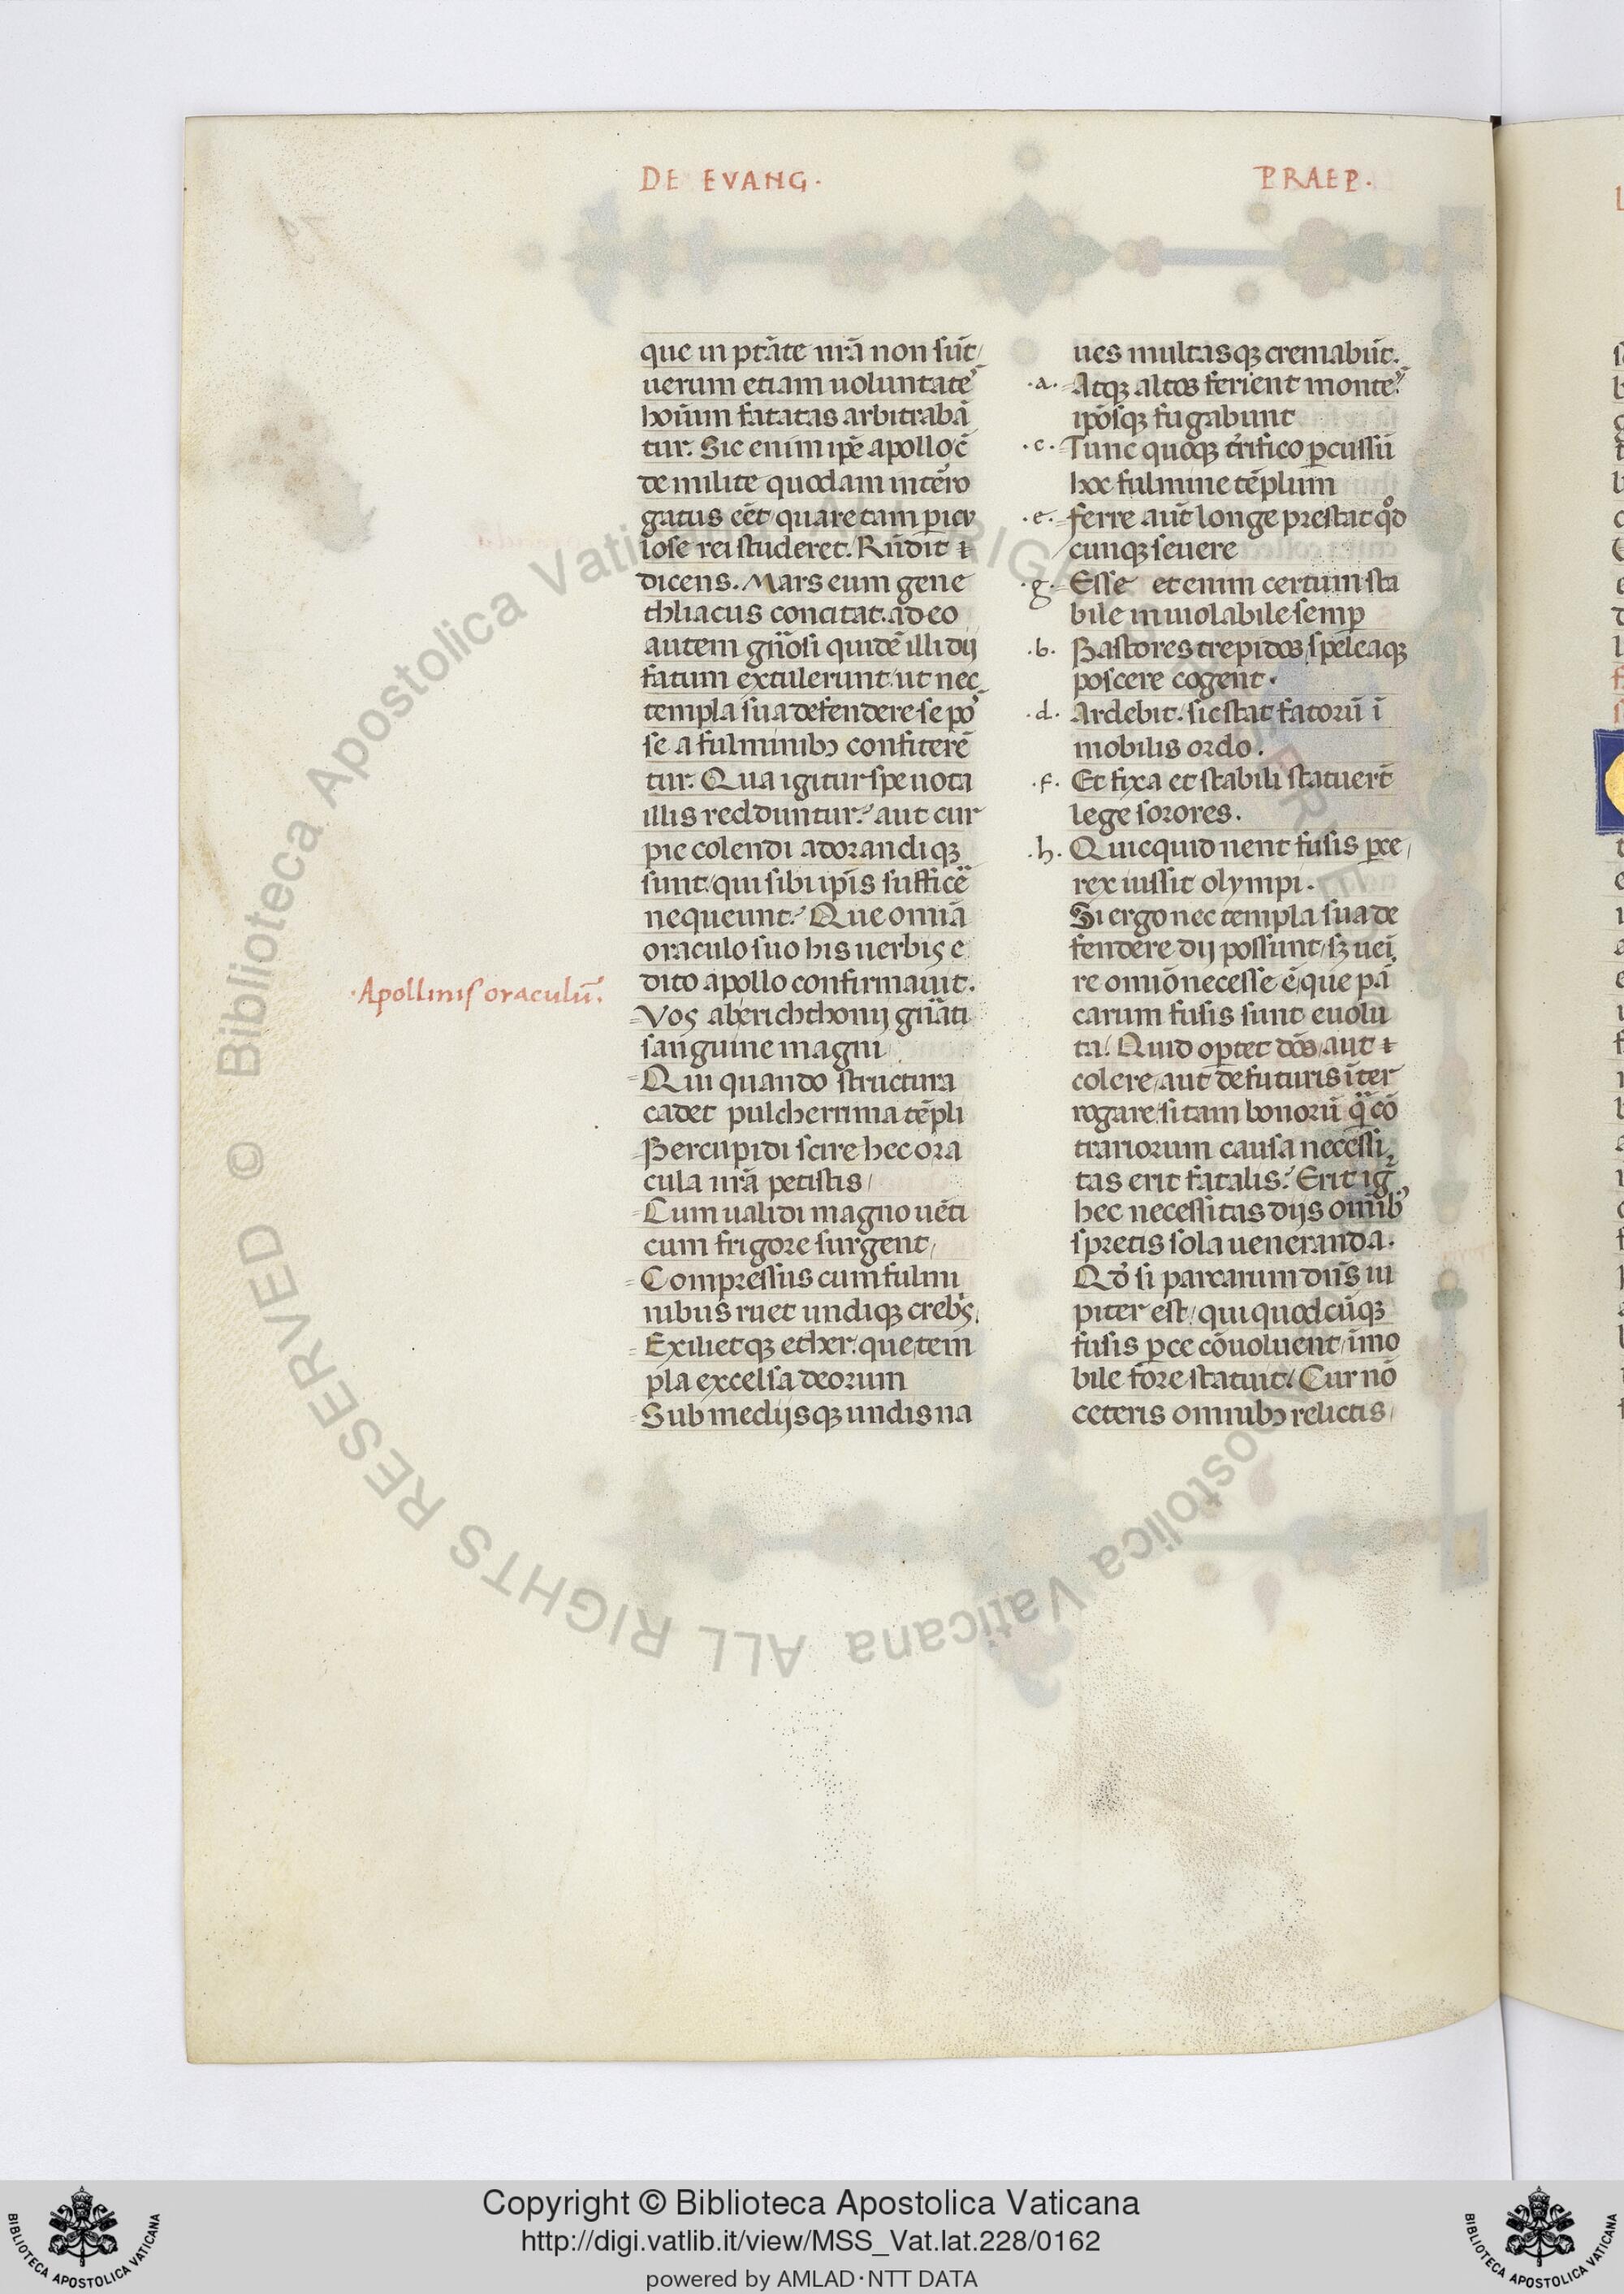 DE EVANG.
PRAEP.
que in ptāte nrā non sūt/
uerum etiam uoluntate᷒
hoīum fatatas arbitrabā
tur. Sic enim ipē apollo c̄
de milite quodam intẽro
gatus eēt/ quare tam picu
lose rei studeret. Rn̄dit ⁊
dicens. Mars eum gene
thliacus concitat. ad eo
autem gn̄osi quidē illi dij
fatum extulerunt ut nec
templa sua defendere se po᷒
se a fulminibꝫ confiterē
tur. Qua igitur spe uota
illis redduntur? aut cur
pie colendi adorandiqꝫ
sunt/ qui sibi ipīs sufficē
nequeunt? Que omīa
oraculo suo his uerbis e
dito apollo confirmauit.
·Apollinis oraculū.
Vos ab erichthonij gn̄ati
sanguine magni
Qui quando structura
cadet pulcherrima tēpli
Percupidi scire hec ora
cula nrā petistis/
Cum ualidi magno uēti
cum frigore surgent/
Compressus cum fulmi
nibus ruet undiqꝫ crebs.
Exilietqꝫ ether. que tem
pla excelsa deorum
Sub medijsqꝫ undis na
ues multasqꝫ cremabūt.
.a. Atqꝫ altos ferient monte᷒
ipōsqꝫ fugabunt
.c. Tunc quoqꝫ trīfico ꝑcussū
hoc fulmine tēplum
.e. ferre aūt longe prestat qͦd
cunqꝫ seuere
.g. Esse et enim certum sta
bile inuiolabile semꝑ
.b. Pastores trepidos speleaqꝫ
poscere cogent.
.d. Ardebit. sic stat fatorū ī
mobilis ordo.
.f. Et fixa et stabili statuert̄
lege sorores.
.h. Quicquid nent fusis pce/
rex iussit olympi.
Si ergo nec templa sua de
fendere dij possunt/ sꝫ uei
re omīo necesse ē/ que pa
carum fusis sunt euolu
ta. Quid oꝑtet dōs/ aut ⁊
colere/ aut de futuris īter
rogare/ si tam bonorū qͣ cō
trariorum causa necessi
tas erit fatalis? Erit ig̃
hec necessitas dijs omībꝰ
spretis sola ueneranda.
Qd̓ si parcarum dn̄s iu
piter est/ qui quodcūqꝫ
fusis pce cōuoluent/ īmo
bile fore statuit/ Cur nō
ceteris omnibꝫ relictis/
Copyright © Biblioteca Apostolica Vaticana
http://digi.vatlib.it/view/MSS_Vat.lat.228/0162
powered by AMLAD·NTT DATA
BIBLIOTECA APOSTOLICA VATICANA
BIBLIOTECA APOSTOLICA VATICANA
© Biblioteca Apostolica Vaticana ALL RIGHTS RESERVED